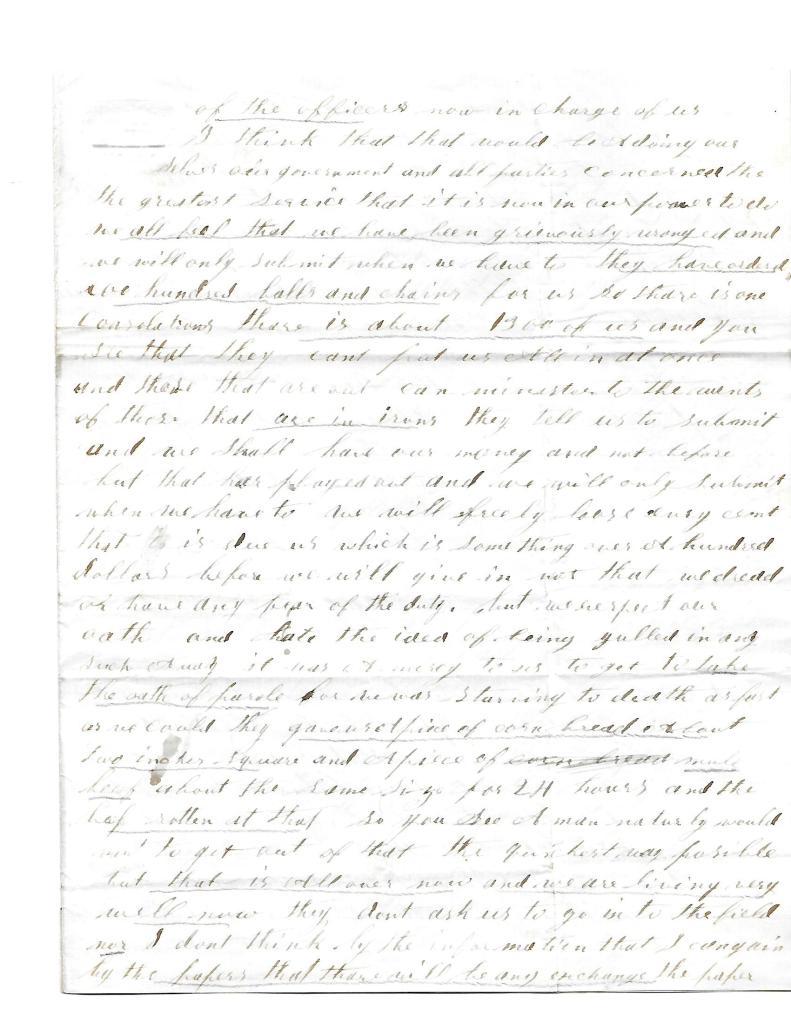 of the officers now in charge of us
I think that that would be A doing our
selvs our government and all parties concerned the
the greatest service that it is now in our power to do
we all feel that we have been grieviously wronged and
we will only submit when we have to they have ordered
two hundred balls and chains for us so thare is one
Consolations thare is about 1300 of us and you
see that they cant put us All in at once
and those that are out can minister to the wents
of those that are in irons they tell us to submit
and we shall have our money and not before
but that has played out and we will only submit
when we have to we will freely loose evry cent
that is due us which is something over A hundred
dollars before we will give in not that we dread
or have any fear of the duty. but we respect our
oath and hate the idea of being gulled in any
such A way it was A mercy to us to get to take
the oath of parole for we was starving to death as fast
as we could they gave us A piece of corn bread about
two inches square and A piece of corn bread mule
beef about the same size for 24 hours and the
beef rotten at that so you see A man naturly would
want to get out of that the quickest way posible
but that is All over now and we are living very
well now they dont ask us to go in to the field
nor I dont think by the information that I can gain
by the papers that thare will be any exchange the paper